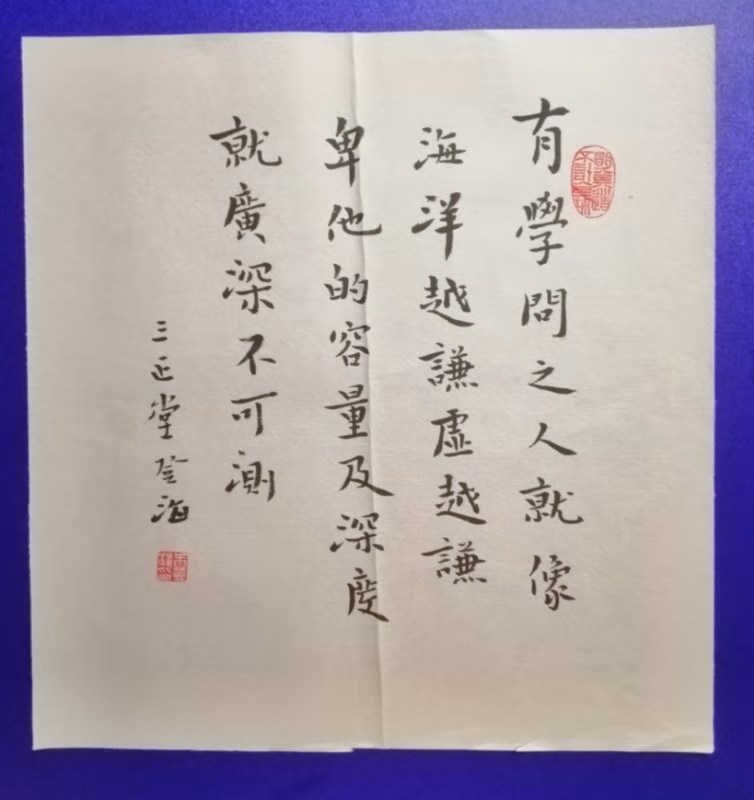 有學問之人就像
海洋越謙虛越謙
卑他的容量及深度
就廣深不可測
三正堂登海